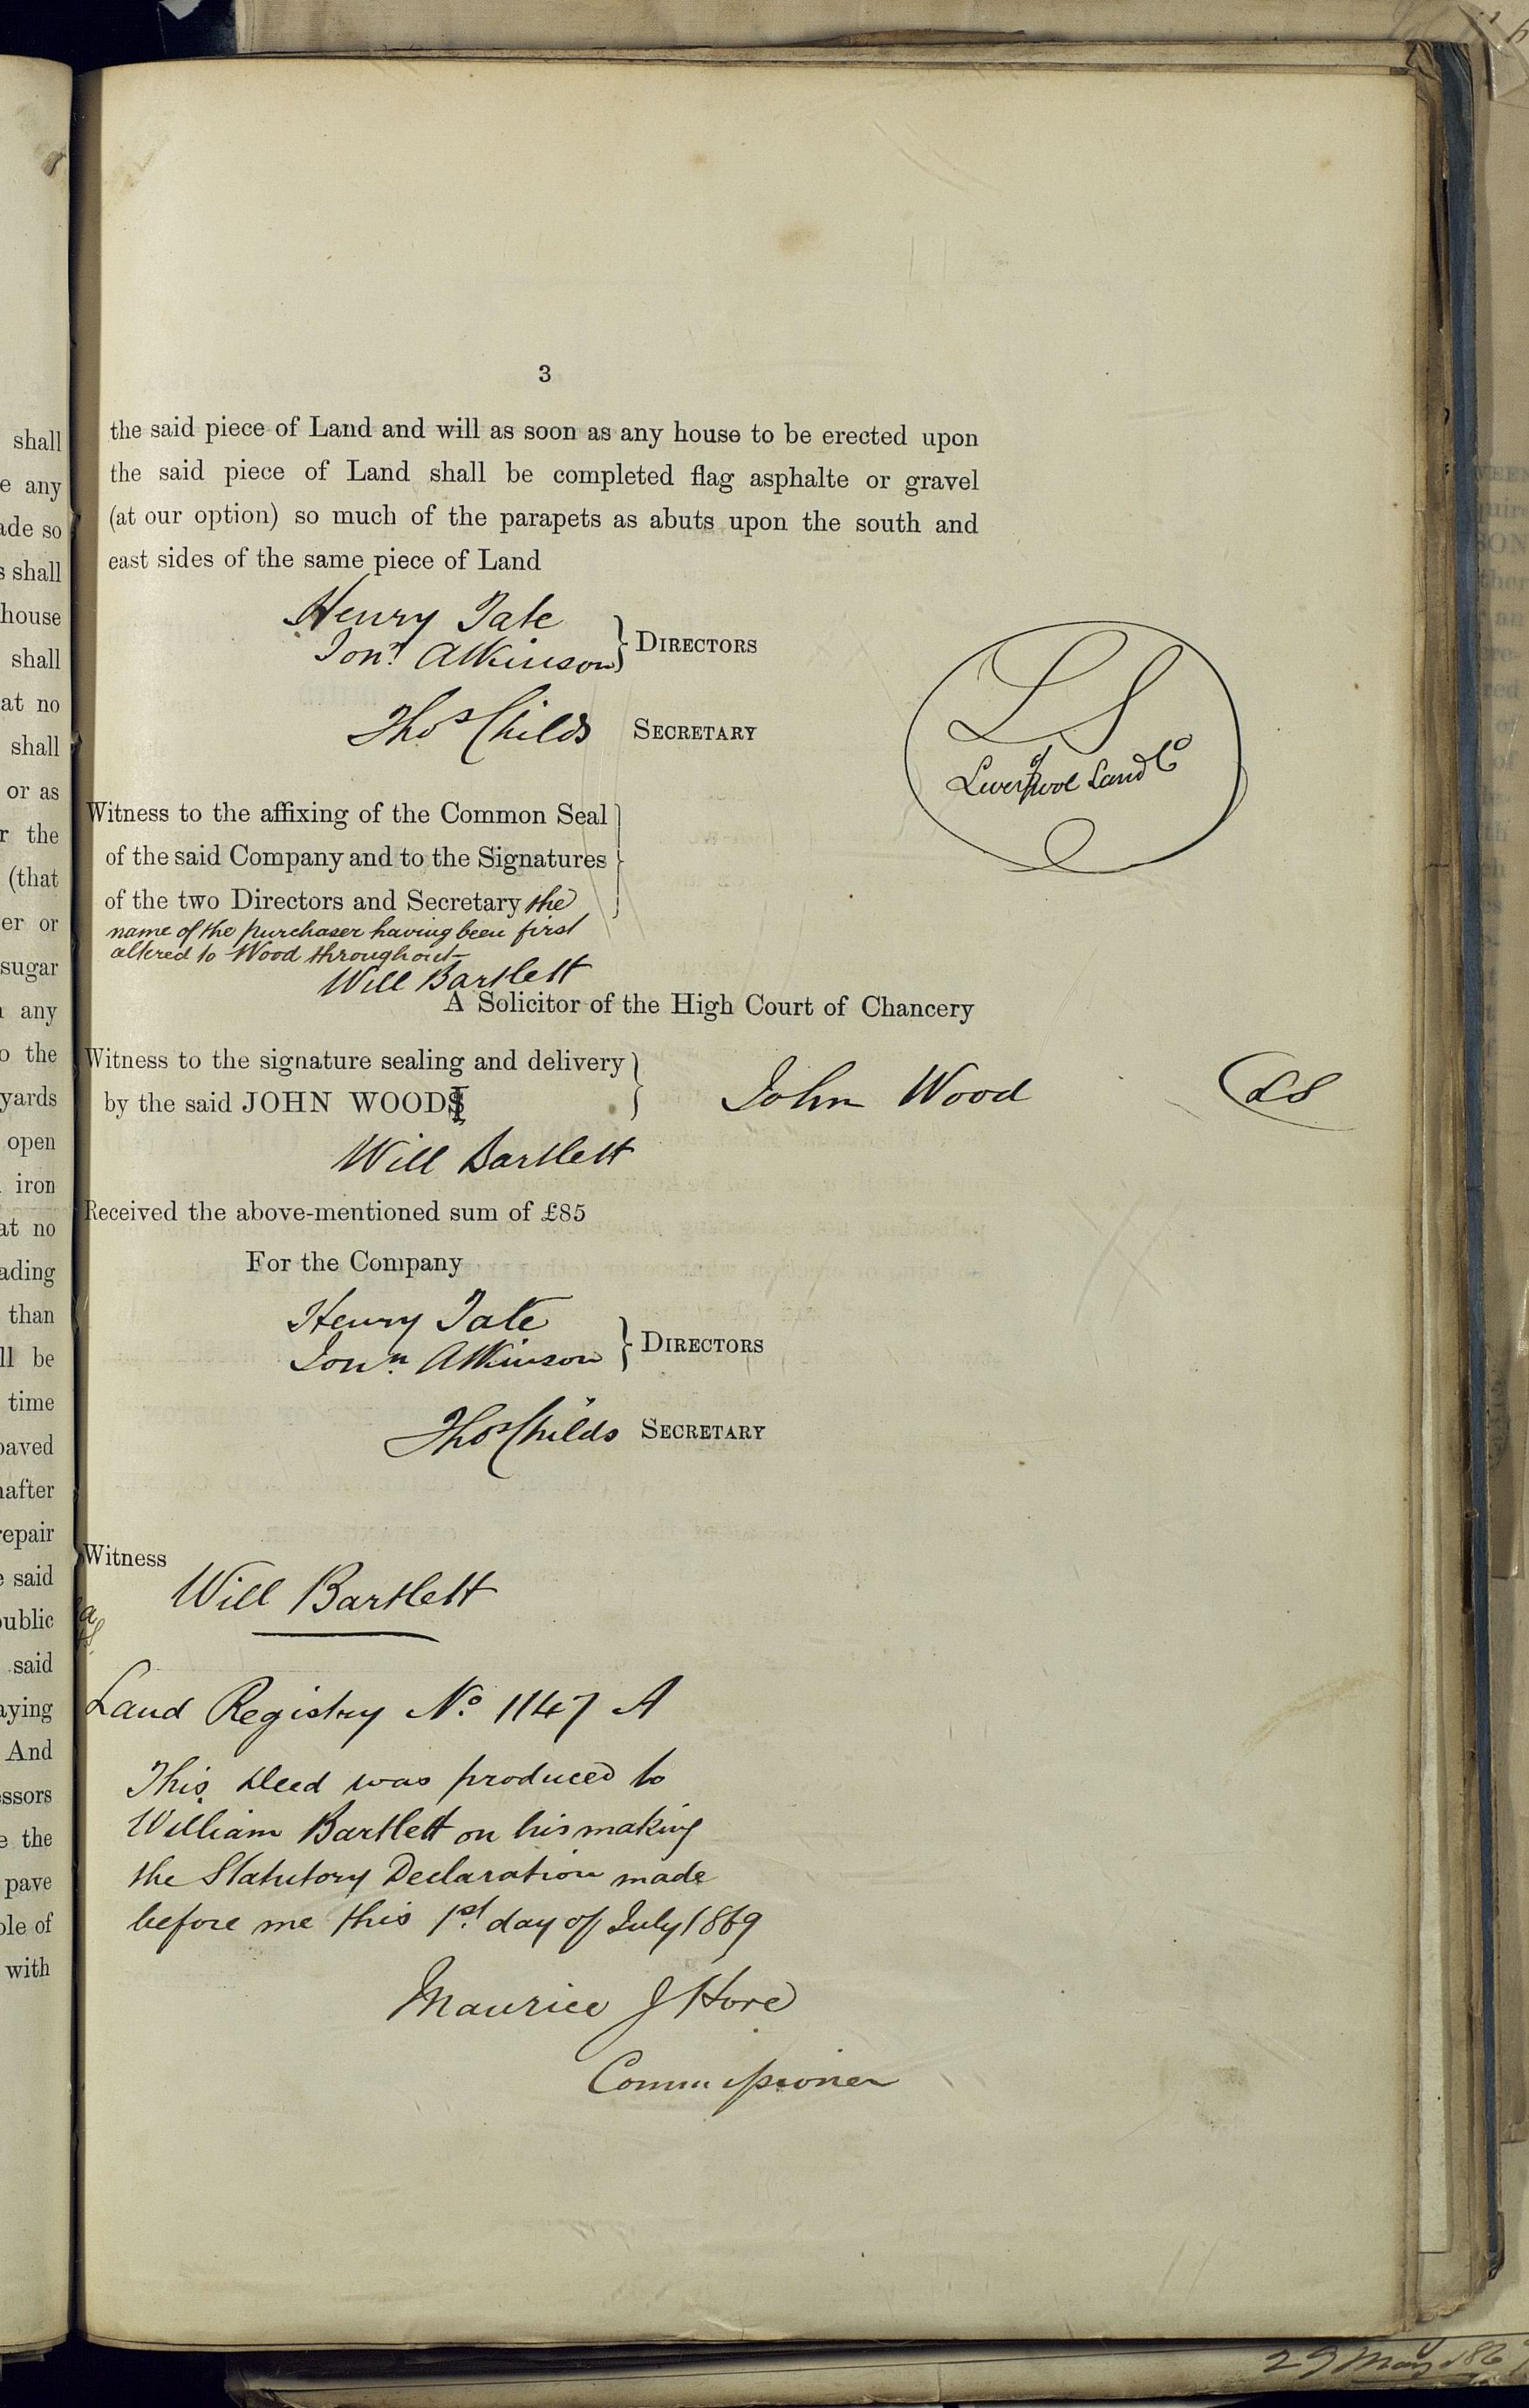 3
the said piece of Land and will as soon as any house to be erected upon
the said piece of Land shall be completed flag asphalte or gravel
(at our option) so much of the parapets as abuts upon the south and
east sides of the same piece of Land
Henry Tate
Jonn. Atkinson
} DIRECTORS
Thos Childs SECRETARY
L S
of
Liverpool Land Co
Witness to the affixing of the Common Seal
of the said Company and to the Signatures
of the two Directors and Secretary the
name of the purchaser having been first
altered to Wood throughout
Will Bartlett
A Solicitor of the High Court of Chancery
Witness to the signature sealing and delivery
by the said JOHN WOODS
John Wood
LS
Will Bartlett
Received the above-mentioned sum of £85
For the Company
Henry Tate
Jonn. Atkinson
} DIRECTORS
Thos Childs SECRETARY
Witness
Will Bartlett
Land Registry No. 1147 A
This Deed was produced to
William Bartlett on his making
the Statutory Declaration made
before me this 1st. day of July 1869
Maurice J Hore
Commissioner
shall
e any
ade so
s shall
house
shall
at no
shall
or as
r the
(that
er or
sugar
any
o the
yards
open
iron
at no
ading
than
ll be
time
paved
nafter
repair
e said
public
said
aying
And
essors
e the
pave
ble of
with
29 May 186